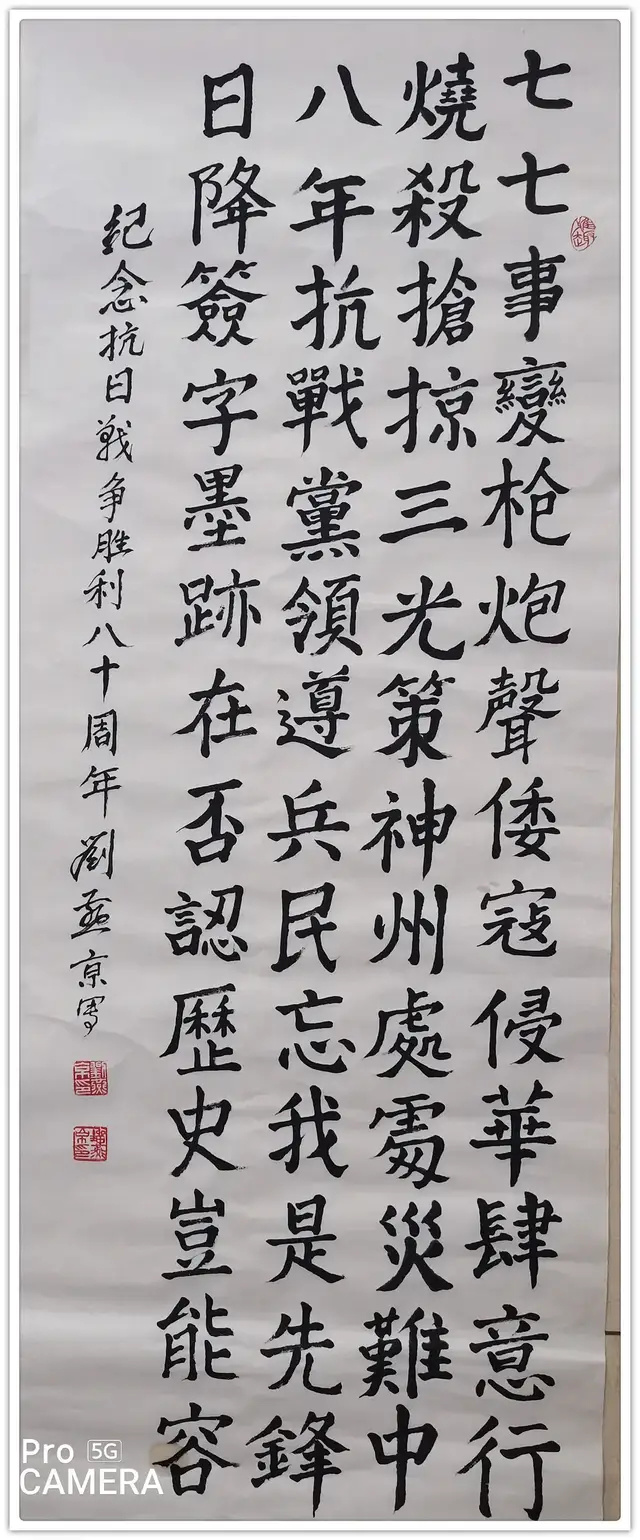 七七事變枪炮聲倭寇侵華肆意行
燒殺搶掠三光策神州處處災難中
八年抗戰黨領導兵民忘我是先鋒
日降簽字墨跡在否認歷史豈能容
纪念抗日战争胜利八十周年劉燕京写
雅趣
Pro 5G
CAMERA